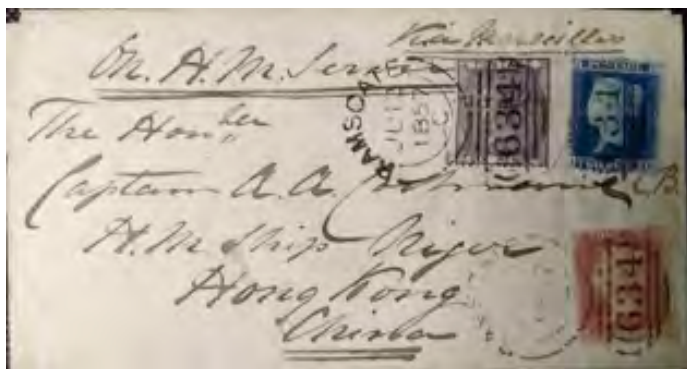 Via Marseilles
On. H. M. Service
The Hon.ble
Captain A. A. Cochrane C.B.
H. M Ship Niger
Hong Kong
China
RAMSGATE
JU
1857
C
634
634
634